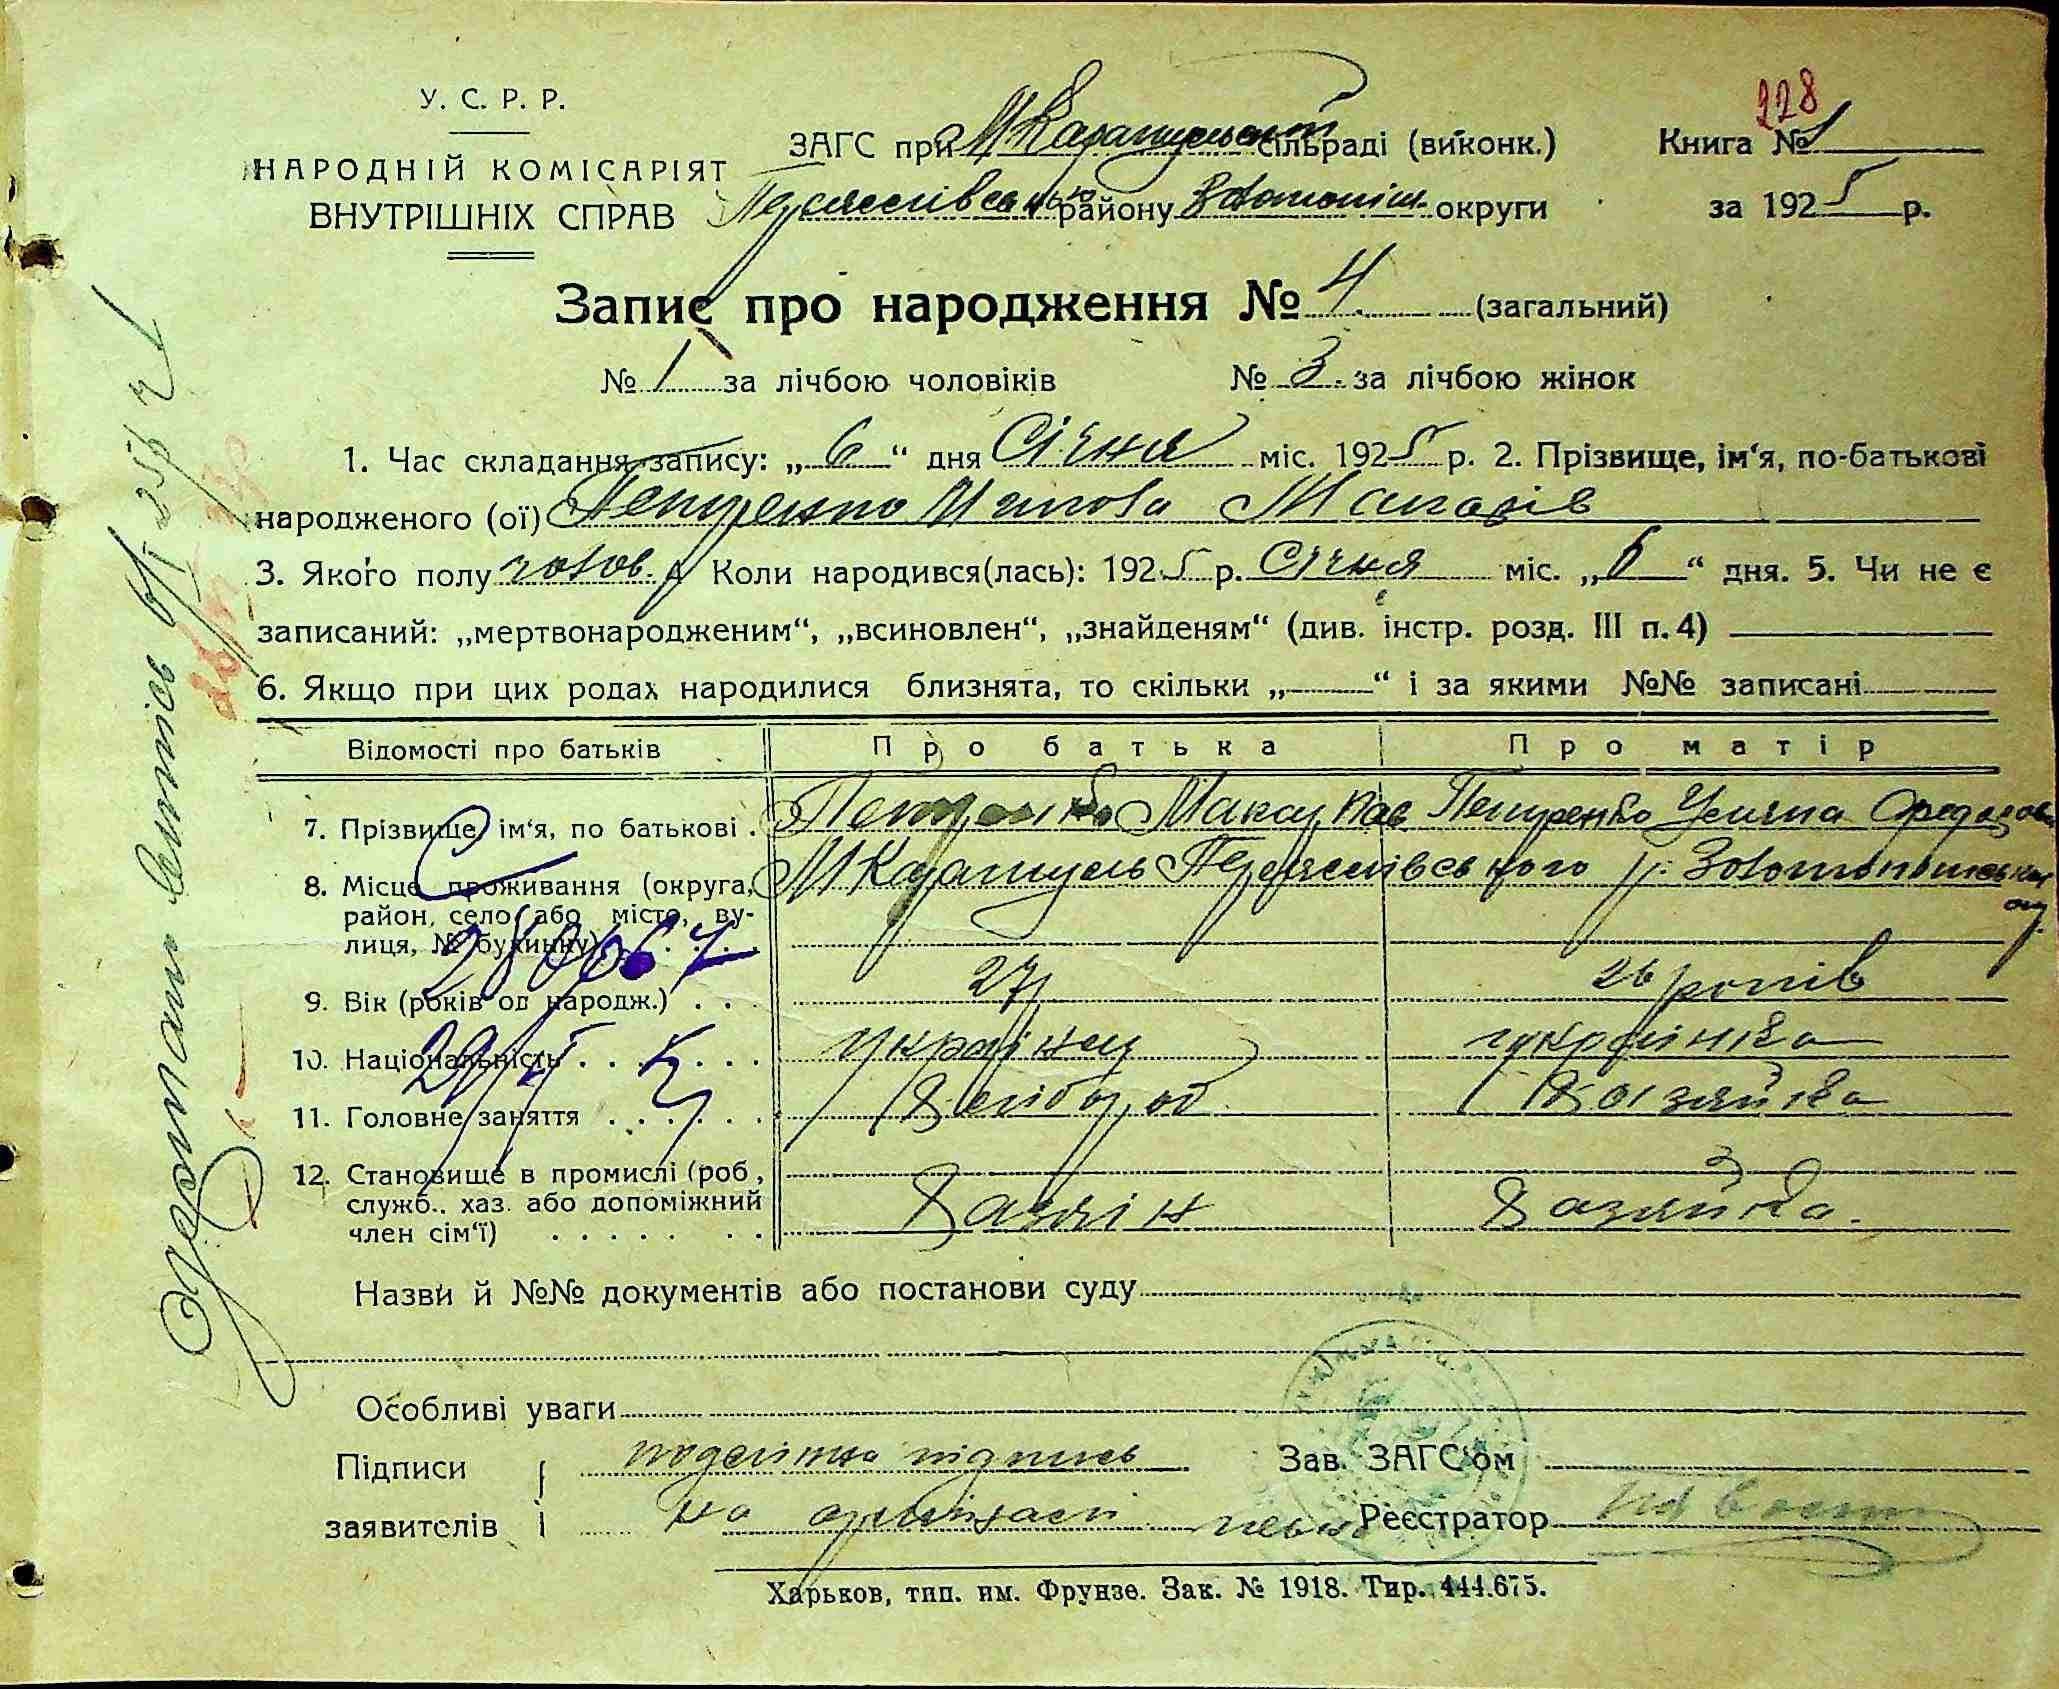 У. С. Р. Р.
НАРОДНІЙ КОМІСАРІЯТ
ВНУТРІШНІХ СПРАВ
ЗАГС при М Каратульській сільраді (виконк.)
Переяслівськ району Золотоніш. округи
228
Книга № 1
за 1925 р.
Запис про народження № 4 (загальний)
№ 1 за лічбою чоловіків № 3 за лічбою жінок
1. Час складання запису: „6“ дня Січня міс. 1925 р. 2. Прізвище, ім‘я, по-батькові
народженого (ої) Петренко Микола Макарів
3. Якого полу чолов. 4 Коли народився(лась): 1925 р. Січня міс. „6“ дня. 5. Чи не є
записаний: „мертвонародженим“, „всиновлен“, „знайденям“ (див. інстр. розд. III п. 4)
6. Якщо при цих родах народилися близнята, то скільки „ “ і за якими №№ записані
Відомості про батьків Про батька Про матір
7. Прізвище, ім‘я, по батькові Петренко Макар Пав Петренко Уляна
8. Місце проживання (округа, М Каратуль Переяслівського р. Золотоношської
район, село або місто, ву-
лиця, № будинку)
9. Вік (років од народж.) 27 26 років
10. Національність українец українка
11. Головне заняття Хлібороб Хозяйка
12. Становище в промислі (роб,
служб., хаз. або допоміжний Хазяін Хазяйка.
член сім‘ї)
Назви й №№ документів або постанови суду
Особливі уваги
Підписи підпись Зав. ЗАГС‘ом
заявителів на Реєстратор
Харьков, тип. им. Фрунзе. Зак. № 1918. Тир. 444.675.